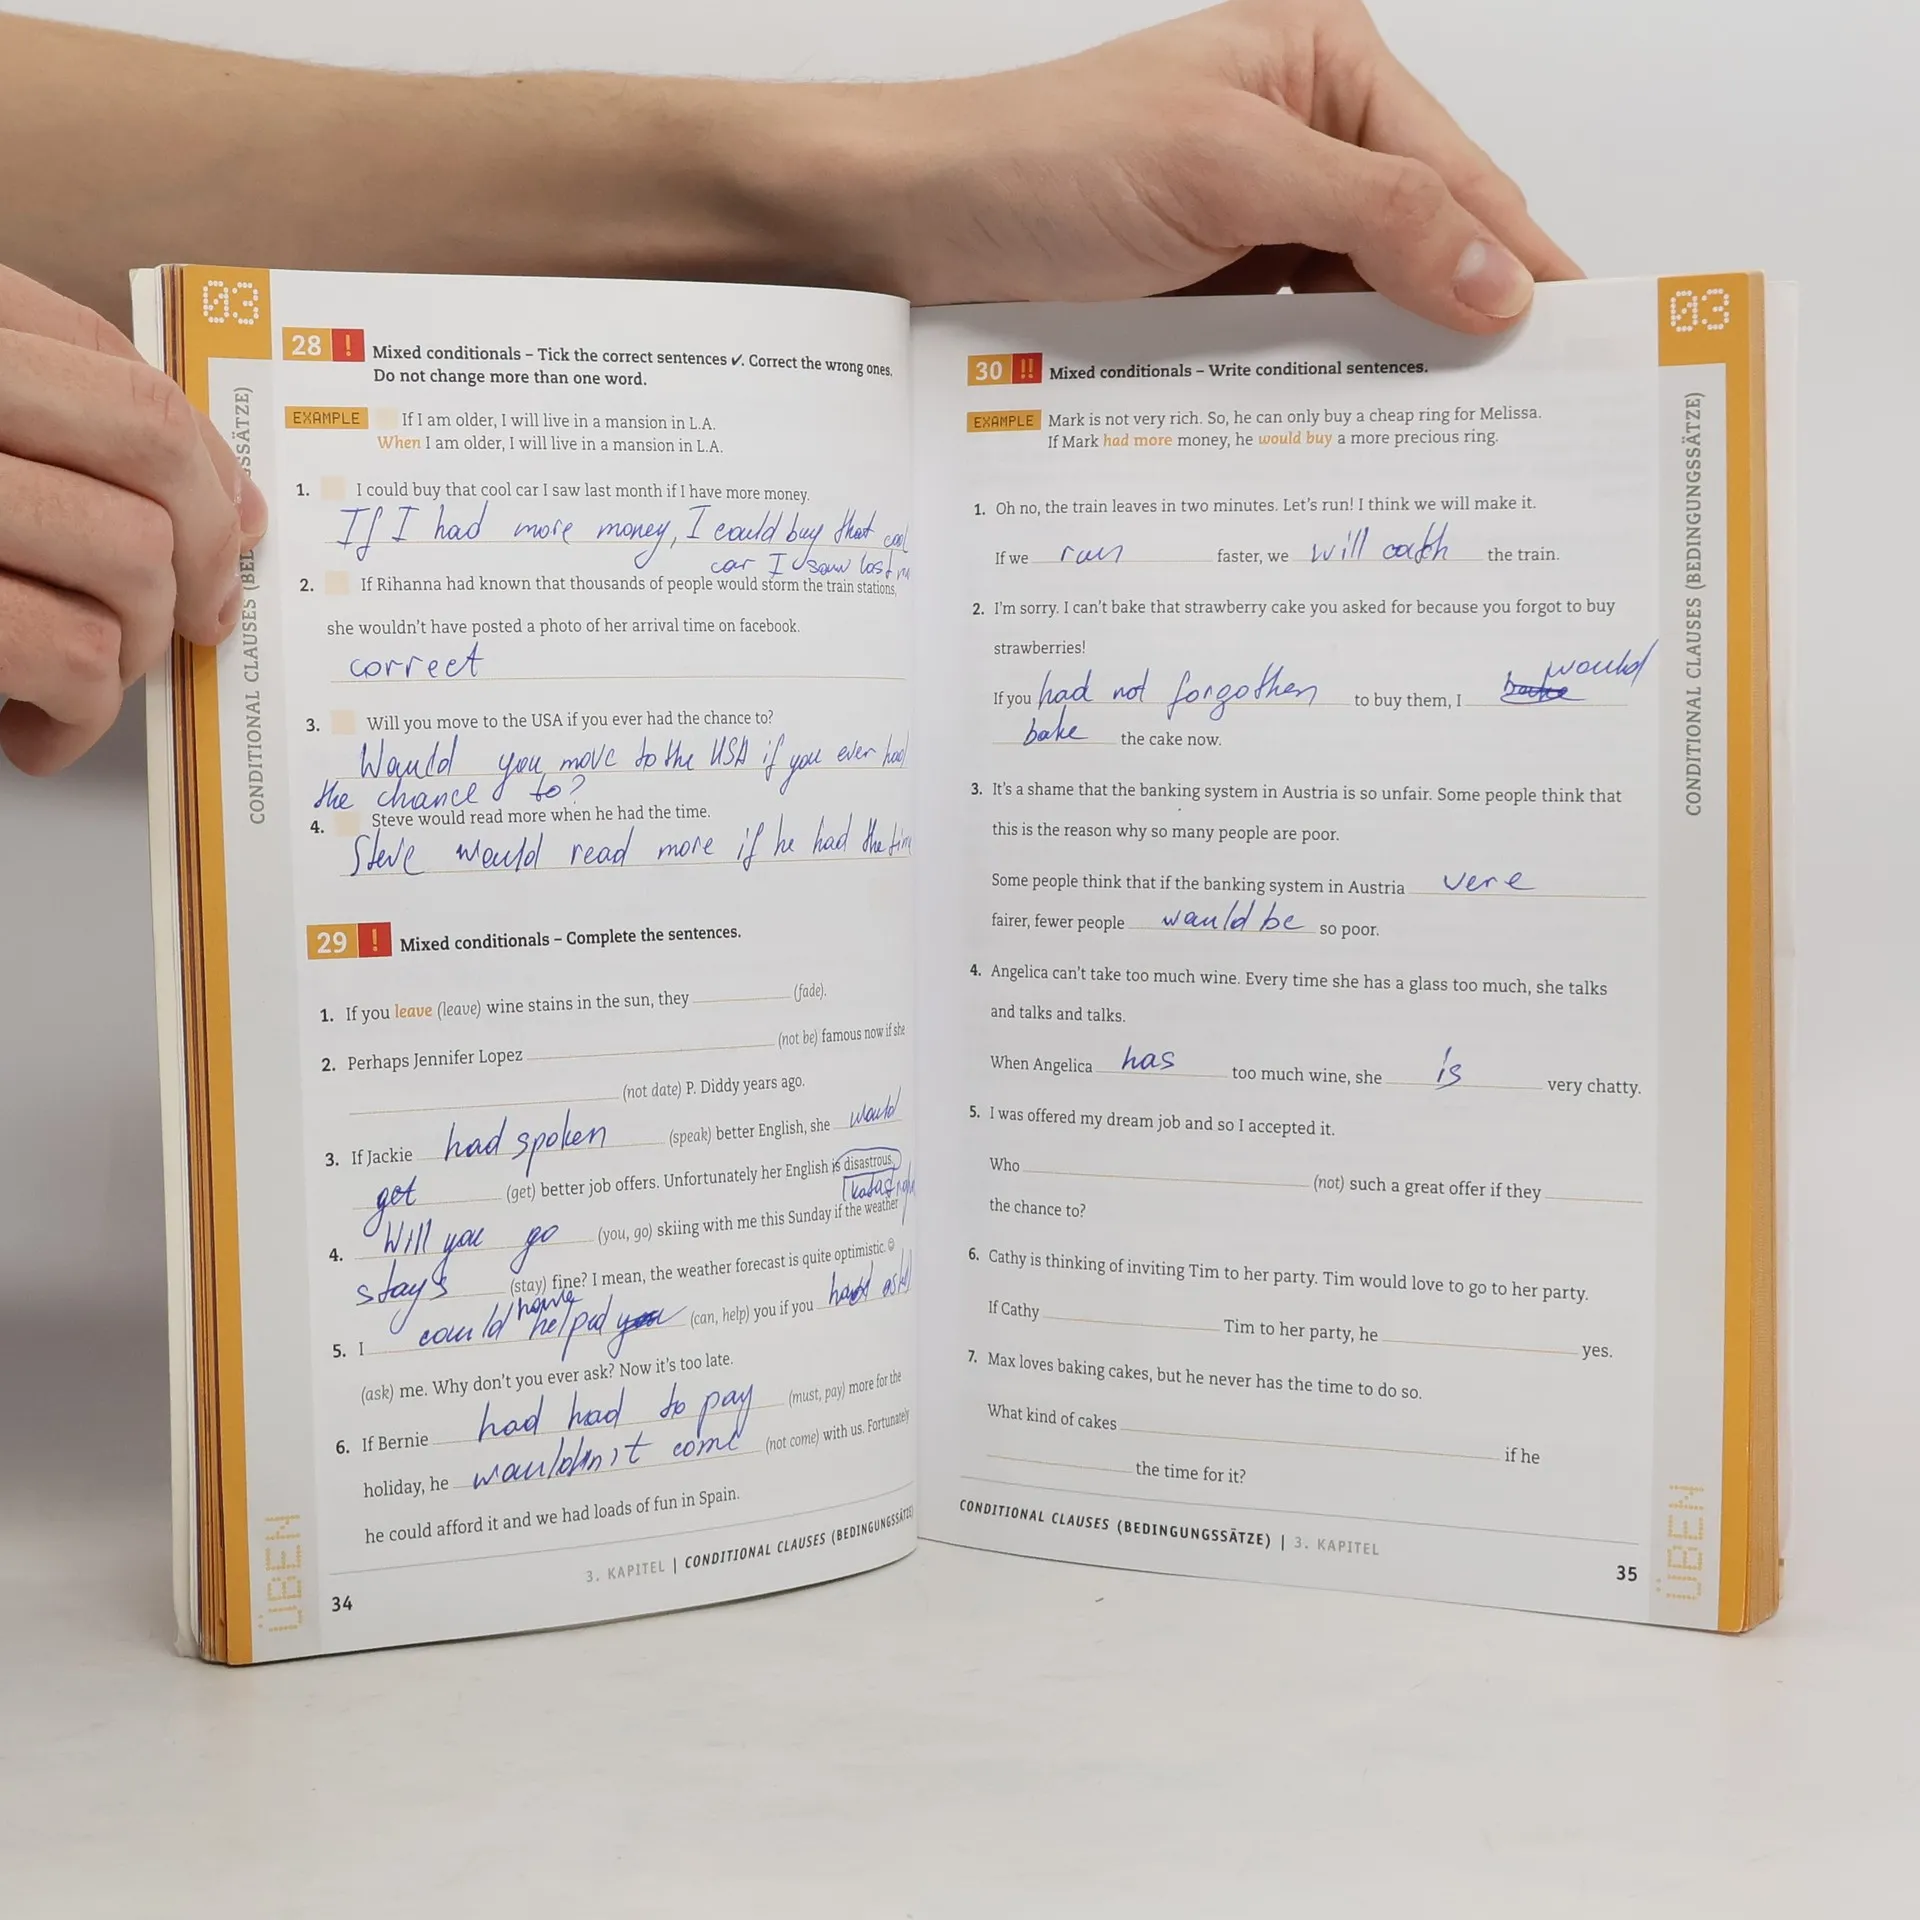 03
CONDITIONAL CLAUSES (BEDINGUNGSSÄTZE)
28 ! Mixed conditionals – Tick the correct sentences ✔. Correct the wrong ones.
Do not change more than one word.
EXAMPLE If I am older, I will live in a mansion in L.A.
When I am older, I will live in a mansion in L.A.
1. I could buy that cool car I saw last month if I have more money.
If I had more money, I could buy that cool
car I saw last
2. If Rihanna had known that thousands of people would storm the train stations,
she wouldn't have posted a photo of her arrival time on facebook.
correct
3. Will you move to the USA if you ever had the chance to?
Would you move to the USA if you ever had
the chance to?
4. Steve would read more when he had the time.
Steve would read more if he had the tim
29 ! Mixed conditionals – Complete the sentences.
1. If you leave (leave) wine stains in the sun, they (fade).
2. Perhaps Jennifer Lopez (not be) famous now if she
(not date) P. Diddy years ago.
3. If Jackie had spoken (speak) better English, she would
get (get) better job offers. Unfortunately her English is disastrous.
4. Will you go (you, go) skiing with me this Sunday if the weather
stays (stay) fine? I mean, the weather forecast is quite optimistic. ☺
have
5. I could helped you (can, help) you if you had
(ask) me. Why don't you ever ask? Now it's too late.
6. If Bernie had had to pay (must, pay) more for the
holiday, he wouldn't come (not come) with us. Fortunately
he could afford it and we had loads of fun in Spain.
3. KAPITEL | CONDITIONAL CLAUSES (BEDINGUNGSSÄTZE)
34
ÜBEN
03
CONDITIONAL CLAUSES (BEDINGUNGSSÄTZE)
30 !! Mixed conditionals – Write conditional sentences.
EXAMPLE Mark is not very rich. So, he can only buy a cheap ring for Melissa.
If Mark had more money, he would buy a more precious ring.
1. Oh no, the train leaves in two minutes. Let's run! I think we will make it.
If we run faster, we will catch the train.
2. I'm sorry. I can't bake that strawberry cake you asked for because you forgot to buy
strawberries!
would
If you had not forgotten to buy them, I
bake the cake now.
3. It's a shame that the banking system in Austria is so unfair. Some people think that
this is the reason why so many people are poor.
Some people think that if the banking system in Austria vere
fairer, fewer people would be so poor.
4. Angelica can't take too much wine. Every time she has a glass too much, she talks
and talks and talks.
When Angelica has too much wine, she is very chatty.
5. I was offered my dream job and so I accepted it.
Who (not) such a great offer if they
the chance to?
6. Cathy is thinking of inviting Tim to her party. Tim would love to go to her party.
If Cathy Tim to her party, he yes.
7. Max loves baking cakes, but he never has the time to do so.
What kind of cakes if he
the time for it?
CONDITIONAL CLAUSES (BEDINGUNGSSÄTZE) | 3. KAPITEL
35
ÜBEN